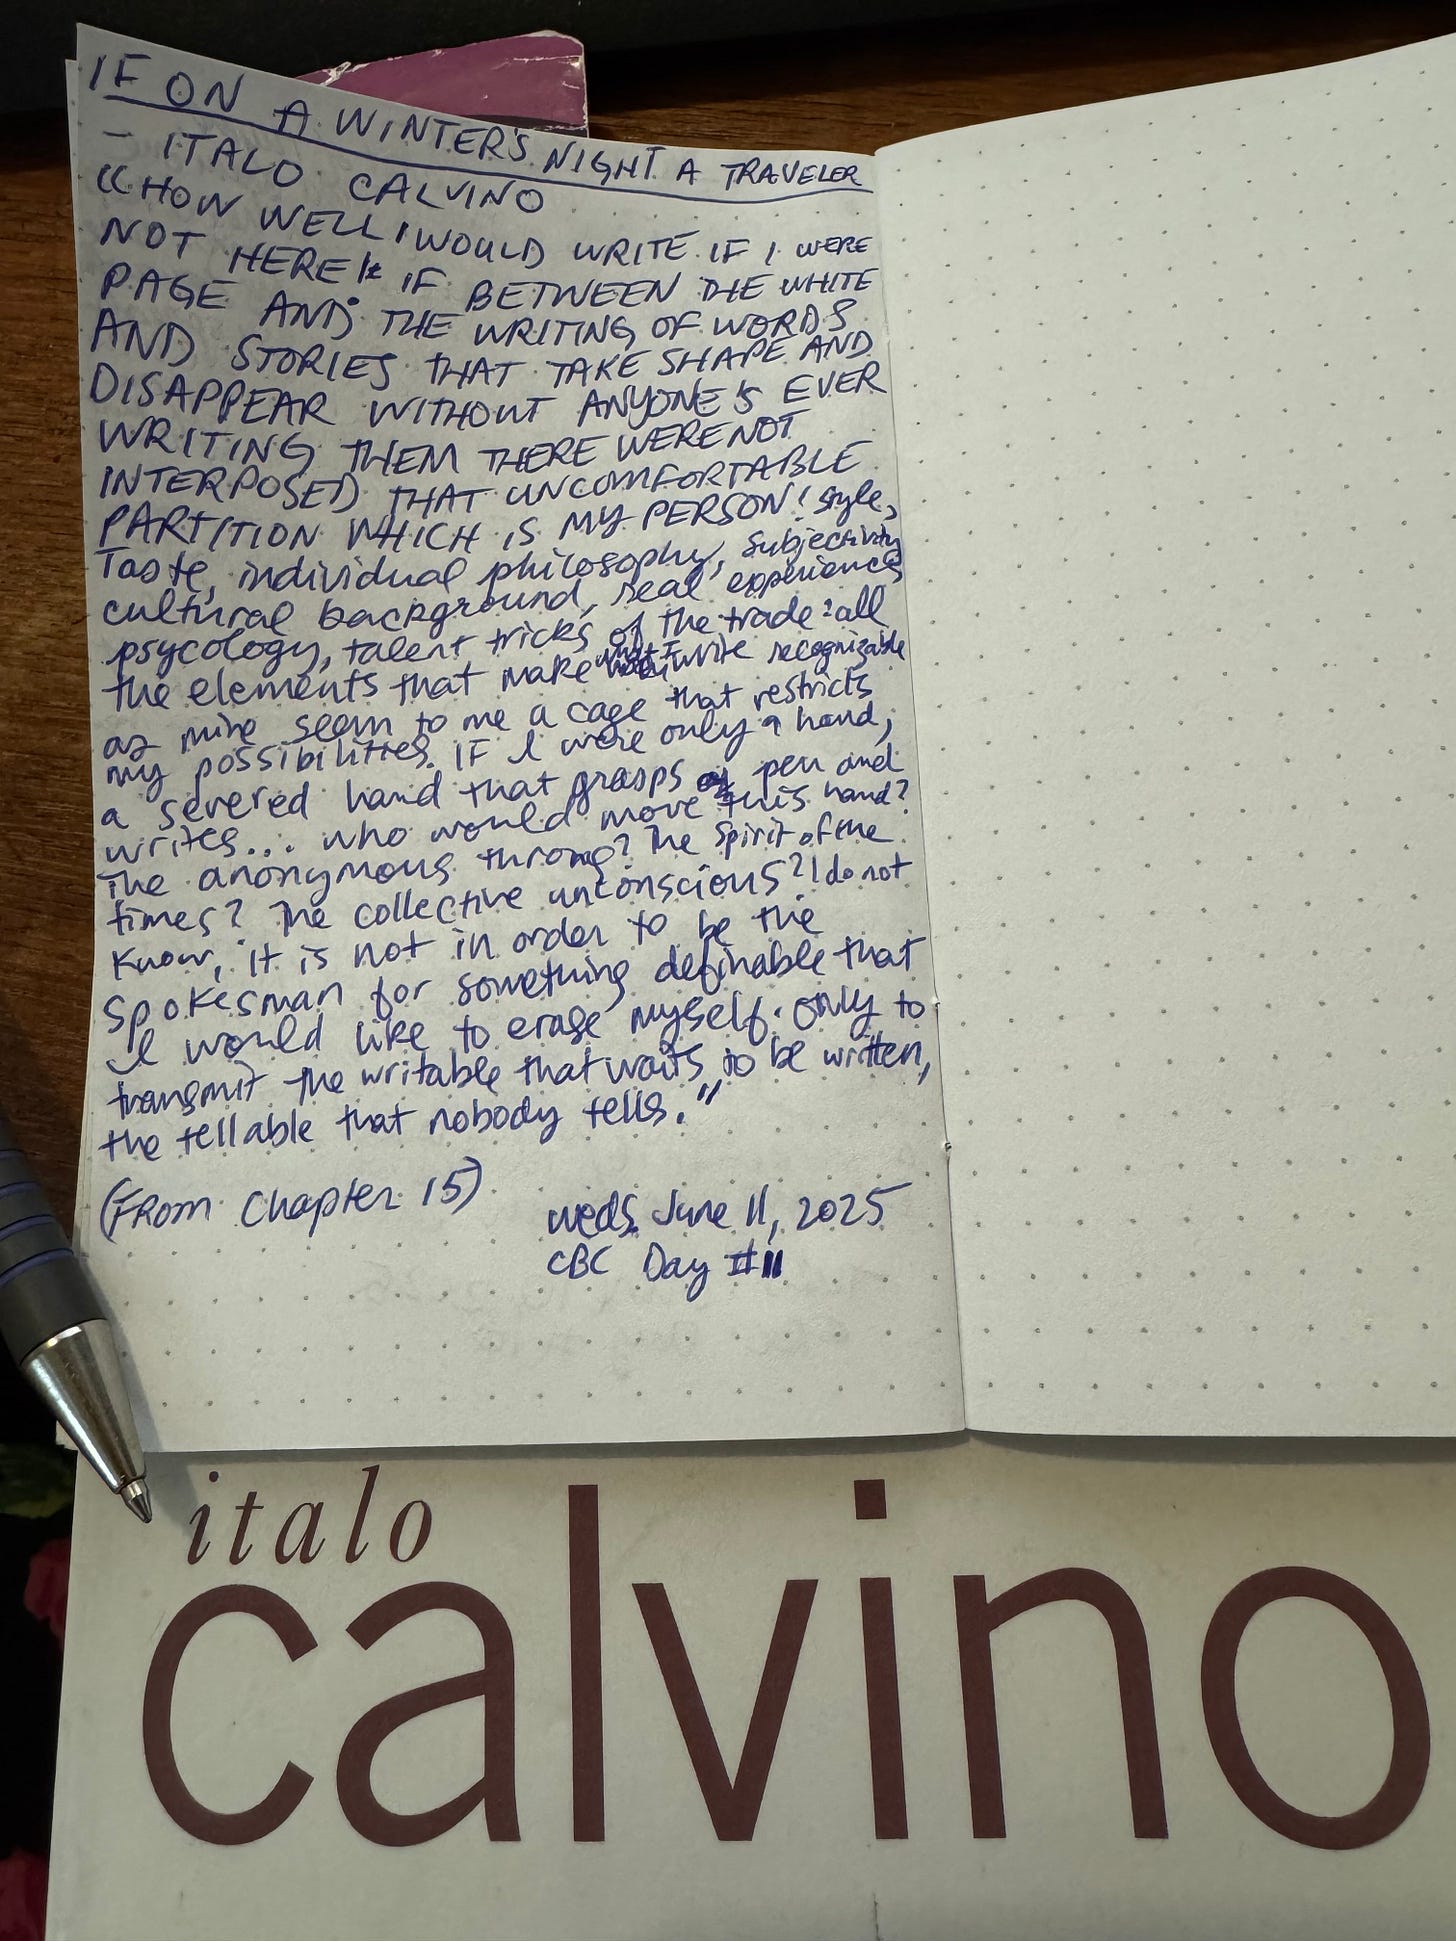 IF ON A WINTER'S NIGHT A TRAVELER
- ITALO CALVINO
"HOW WELL I WOULD WRITE IF I WERE
NOT HERE! IF BETWEEN THE WHITE
PAGE AND THE WRITING OF WORDS
AND STORIES THAT TAKE SHAPE AND
DISAPPEAR WITHOUT ANYONE'S EVER
WRITING THEM THERE WERE NOT
INTERPOSED THAT UNCOMFORTABLE
PARTITION WHICH IS MY PERSON! Style,
Taste, individual philosophy, subjectivity
cultural background, real experiences
psycology, talent tricks of the trade: all
the elements that make what I write recognizable
as mine seem to me a cage that restricts
my possibilities. IF I were only a hand,
a severed hand that grasps a pen and
writes... who would move this hand?
The anonymous throng? The spirit of the
times? The collective unconscious? I do not
know, it is not in order to be the
spokesman for something definable that
I would like to erase myself. only to
transmit the writable that waits to be written,
the tellable that nobody tells."
(FROM Chapter 15)
Weds. June 11, 2025
CBC Day #11
italo
calvino